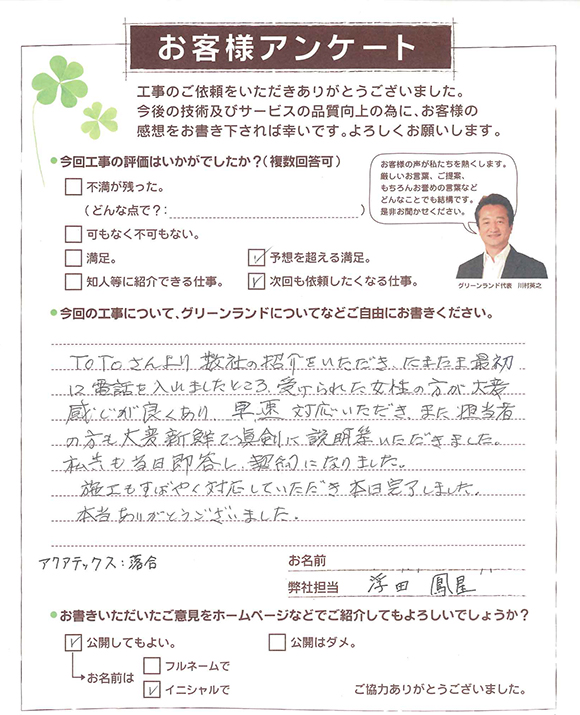 お客様アンケート
工事のご依頼をいただきありがとうございました。
今後の技術及びサービスの品質向上の為に、お客様の
感想をお書き下されば幸いです。よろしくお願いします。
今回工事の評価はいかがでしたか?(複数回答可)
不満が残った。
(どんな点で?:)
可もなく不可もない。
満足。
予想を超える満足。
知人等に紹介できる仕事。
次回も依頼したくなる仕事。
お客様の声が私たちを熱くします。
厳しいお言葉、ご提案、
もちろんお誉めの言葉など
どんなことでも結構です。
是非お聞かせください。
グリーンランド代表 川村英之
今回の工事について、グリーンランドについてなどご自由にお書きください。
TOTOさんより 数社の紹介をいただき、たまたま最初
に電話を入れましたところ、受けられた女性の方が大変
感じが良くあり 早速 対応いただき、また担当者
の方も大変新鮮で真剣に説明等いただきました。
私共も当日即答し、契約になりました。
施工もすばやく対応していただき本日完了しました。
本当ありがとうございました。
アクアテックス:落合
お名前
弊社担当 浮田 鳳星
お書きいただいたご意見をホームページなどでご紹介してもよろしいでしょうか?
公開してもよい。
公開はダメ。
お名前は
フルネームで
イニシャルで
ご協力ありがとうございました。